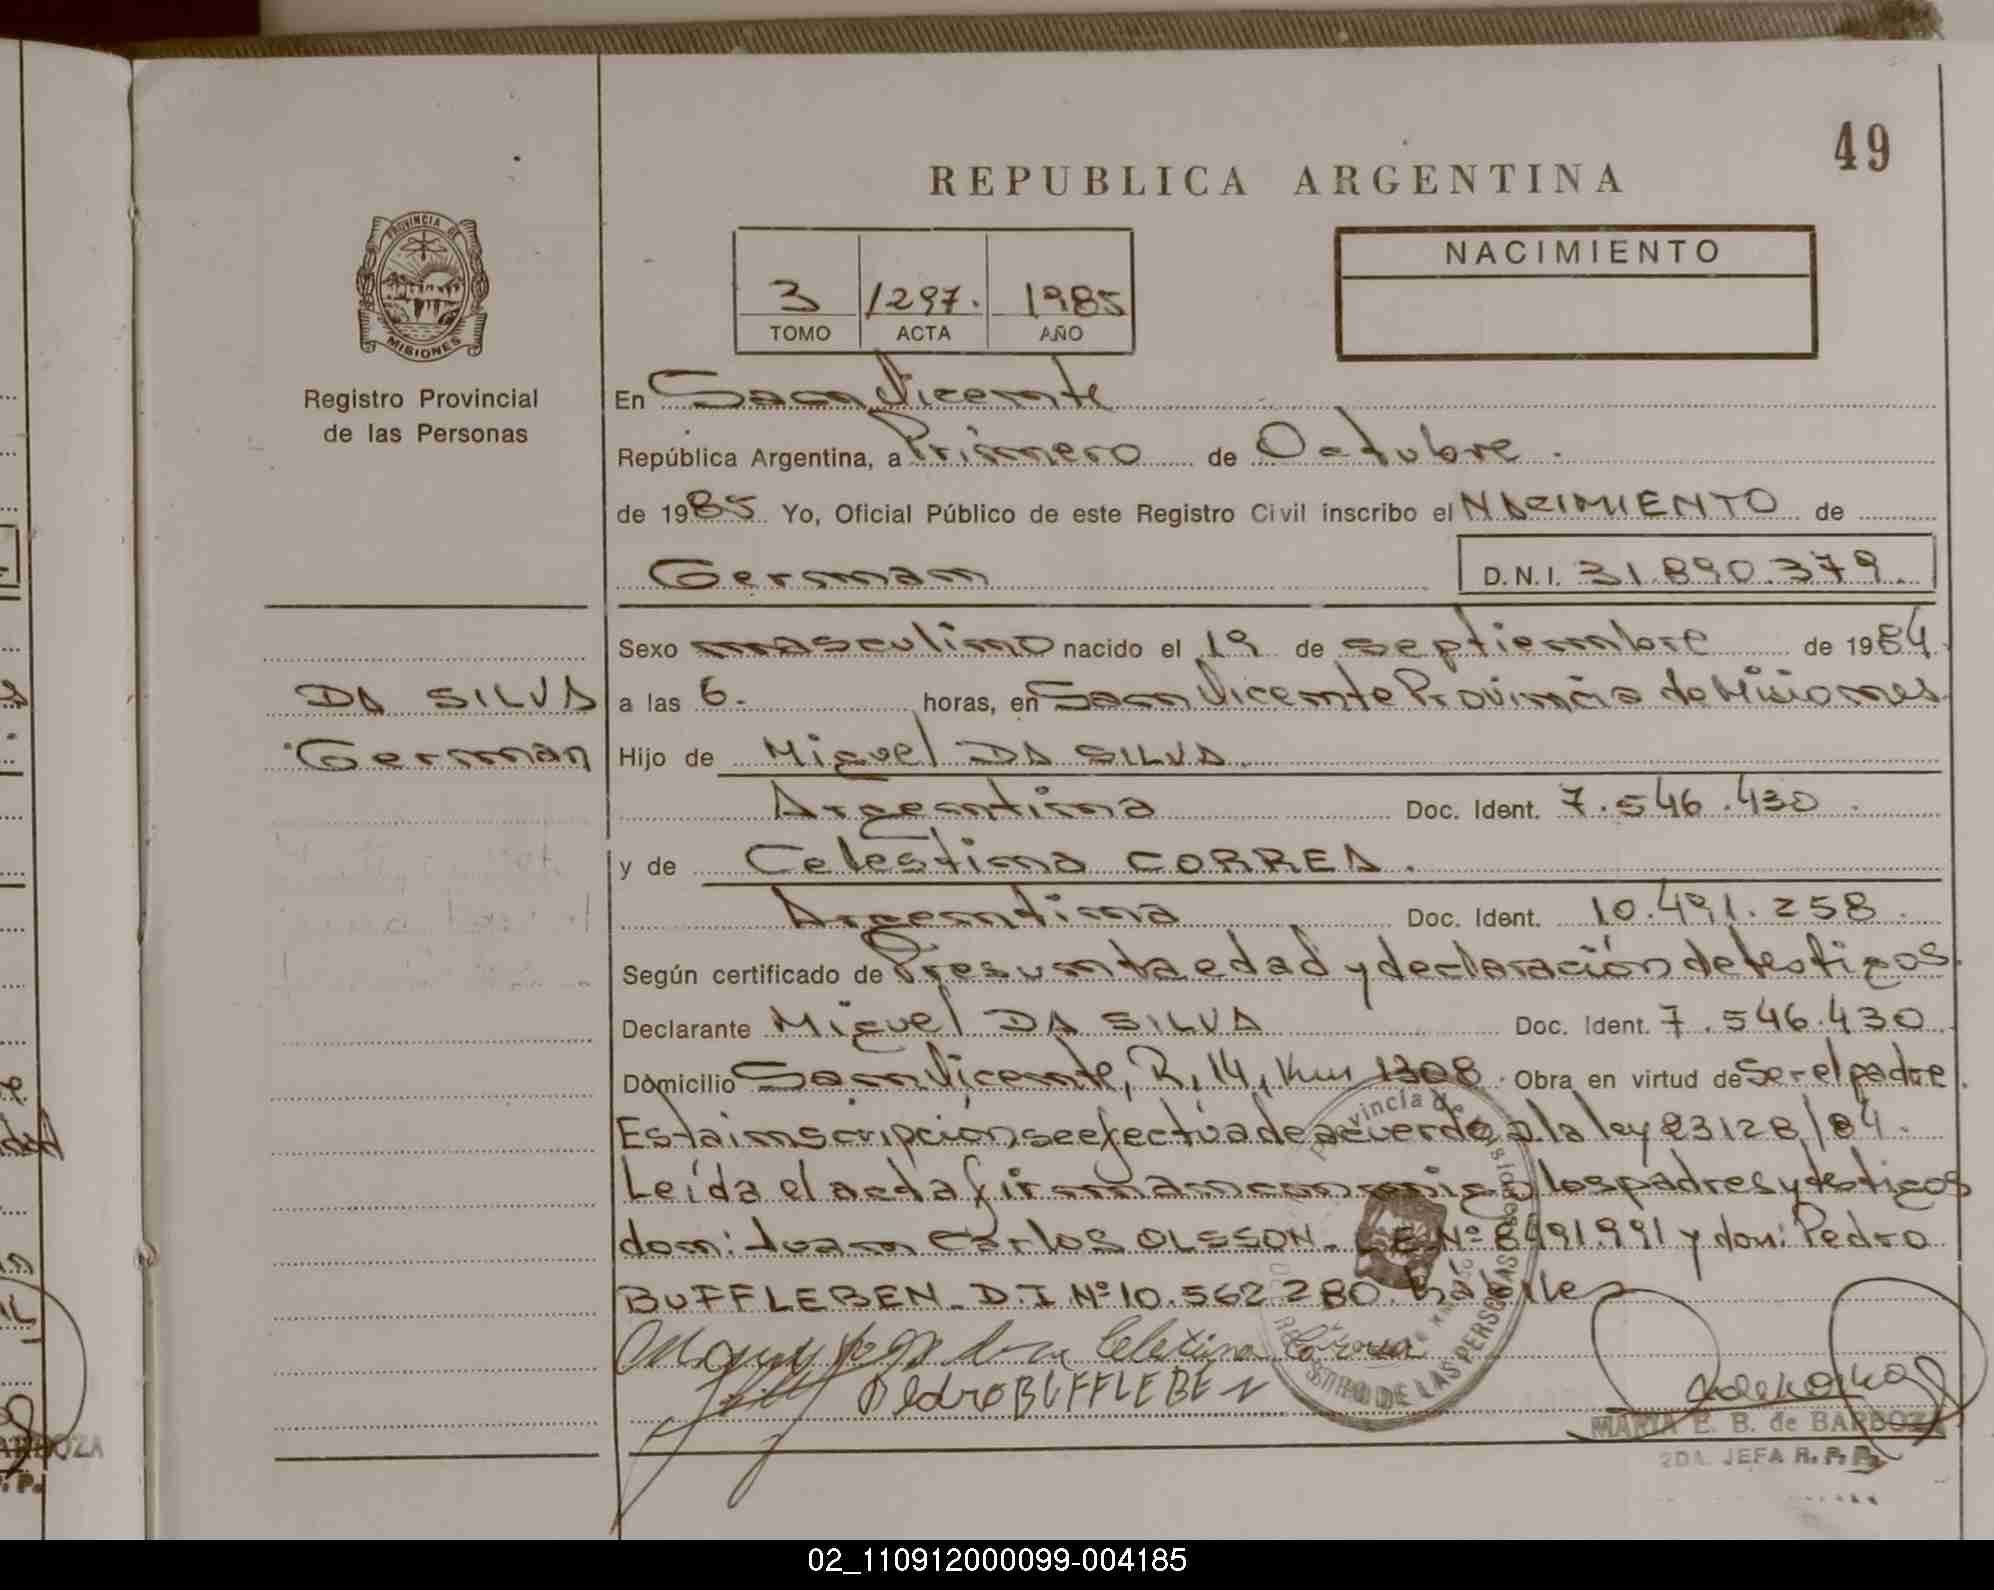 49
REPUBLICA ARGENTINA
PROVINCIA DE
MISIONES
Registro Provincial
de las Personas
3 1297. 1985
TOMO ACTA AÑO
NACIMIENTO
En San Vicente
República Argentina, a Primero de Octubre.
de 1985 Yo, Oficial Público de este Registro Civil inscribo el NACIMIENTO de
German D.N.I. 31.890.379.
Sexo masculino nacido el 19 de septiembre de 1984
DA SILVA
German
a las 6. horas, en San Vicente Provincia de Misiones
Hijo de Miguel DA SILVA.
Argentina Doc. Ident. 7.546.430.
y de Celestina CORREA.
Argentina Doc. Ident. 10.491.258.
Según certificado de Presunta edad y declaración de testigos.
Declarante Miguel DA SILVA Doc. Ident. 7.546.430
Domicilio San Vicente, R, 14, Km 1308. Obra en virtud de Ser el padre.
Esta inscripción se efectúa de acuerdo a la ley 23128/84.
Leída el acta firman conmigo los padres y testigos
don: Juan Carlos OLSSON. L E Nº 8491991 y don: Pedro
BUFFLEBEN. D.I Nº 10.562280. hábiles
Celestina Correa
Pedro BUFFLEBEN
Provincia de Misiones
REGISTRO DE LAS PERSONAS
MARIA E. B. de BARBOZA
2DA. JEFA R. P. P.
02_110912000099-004185